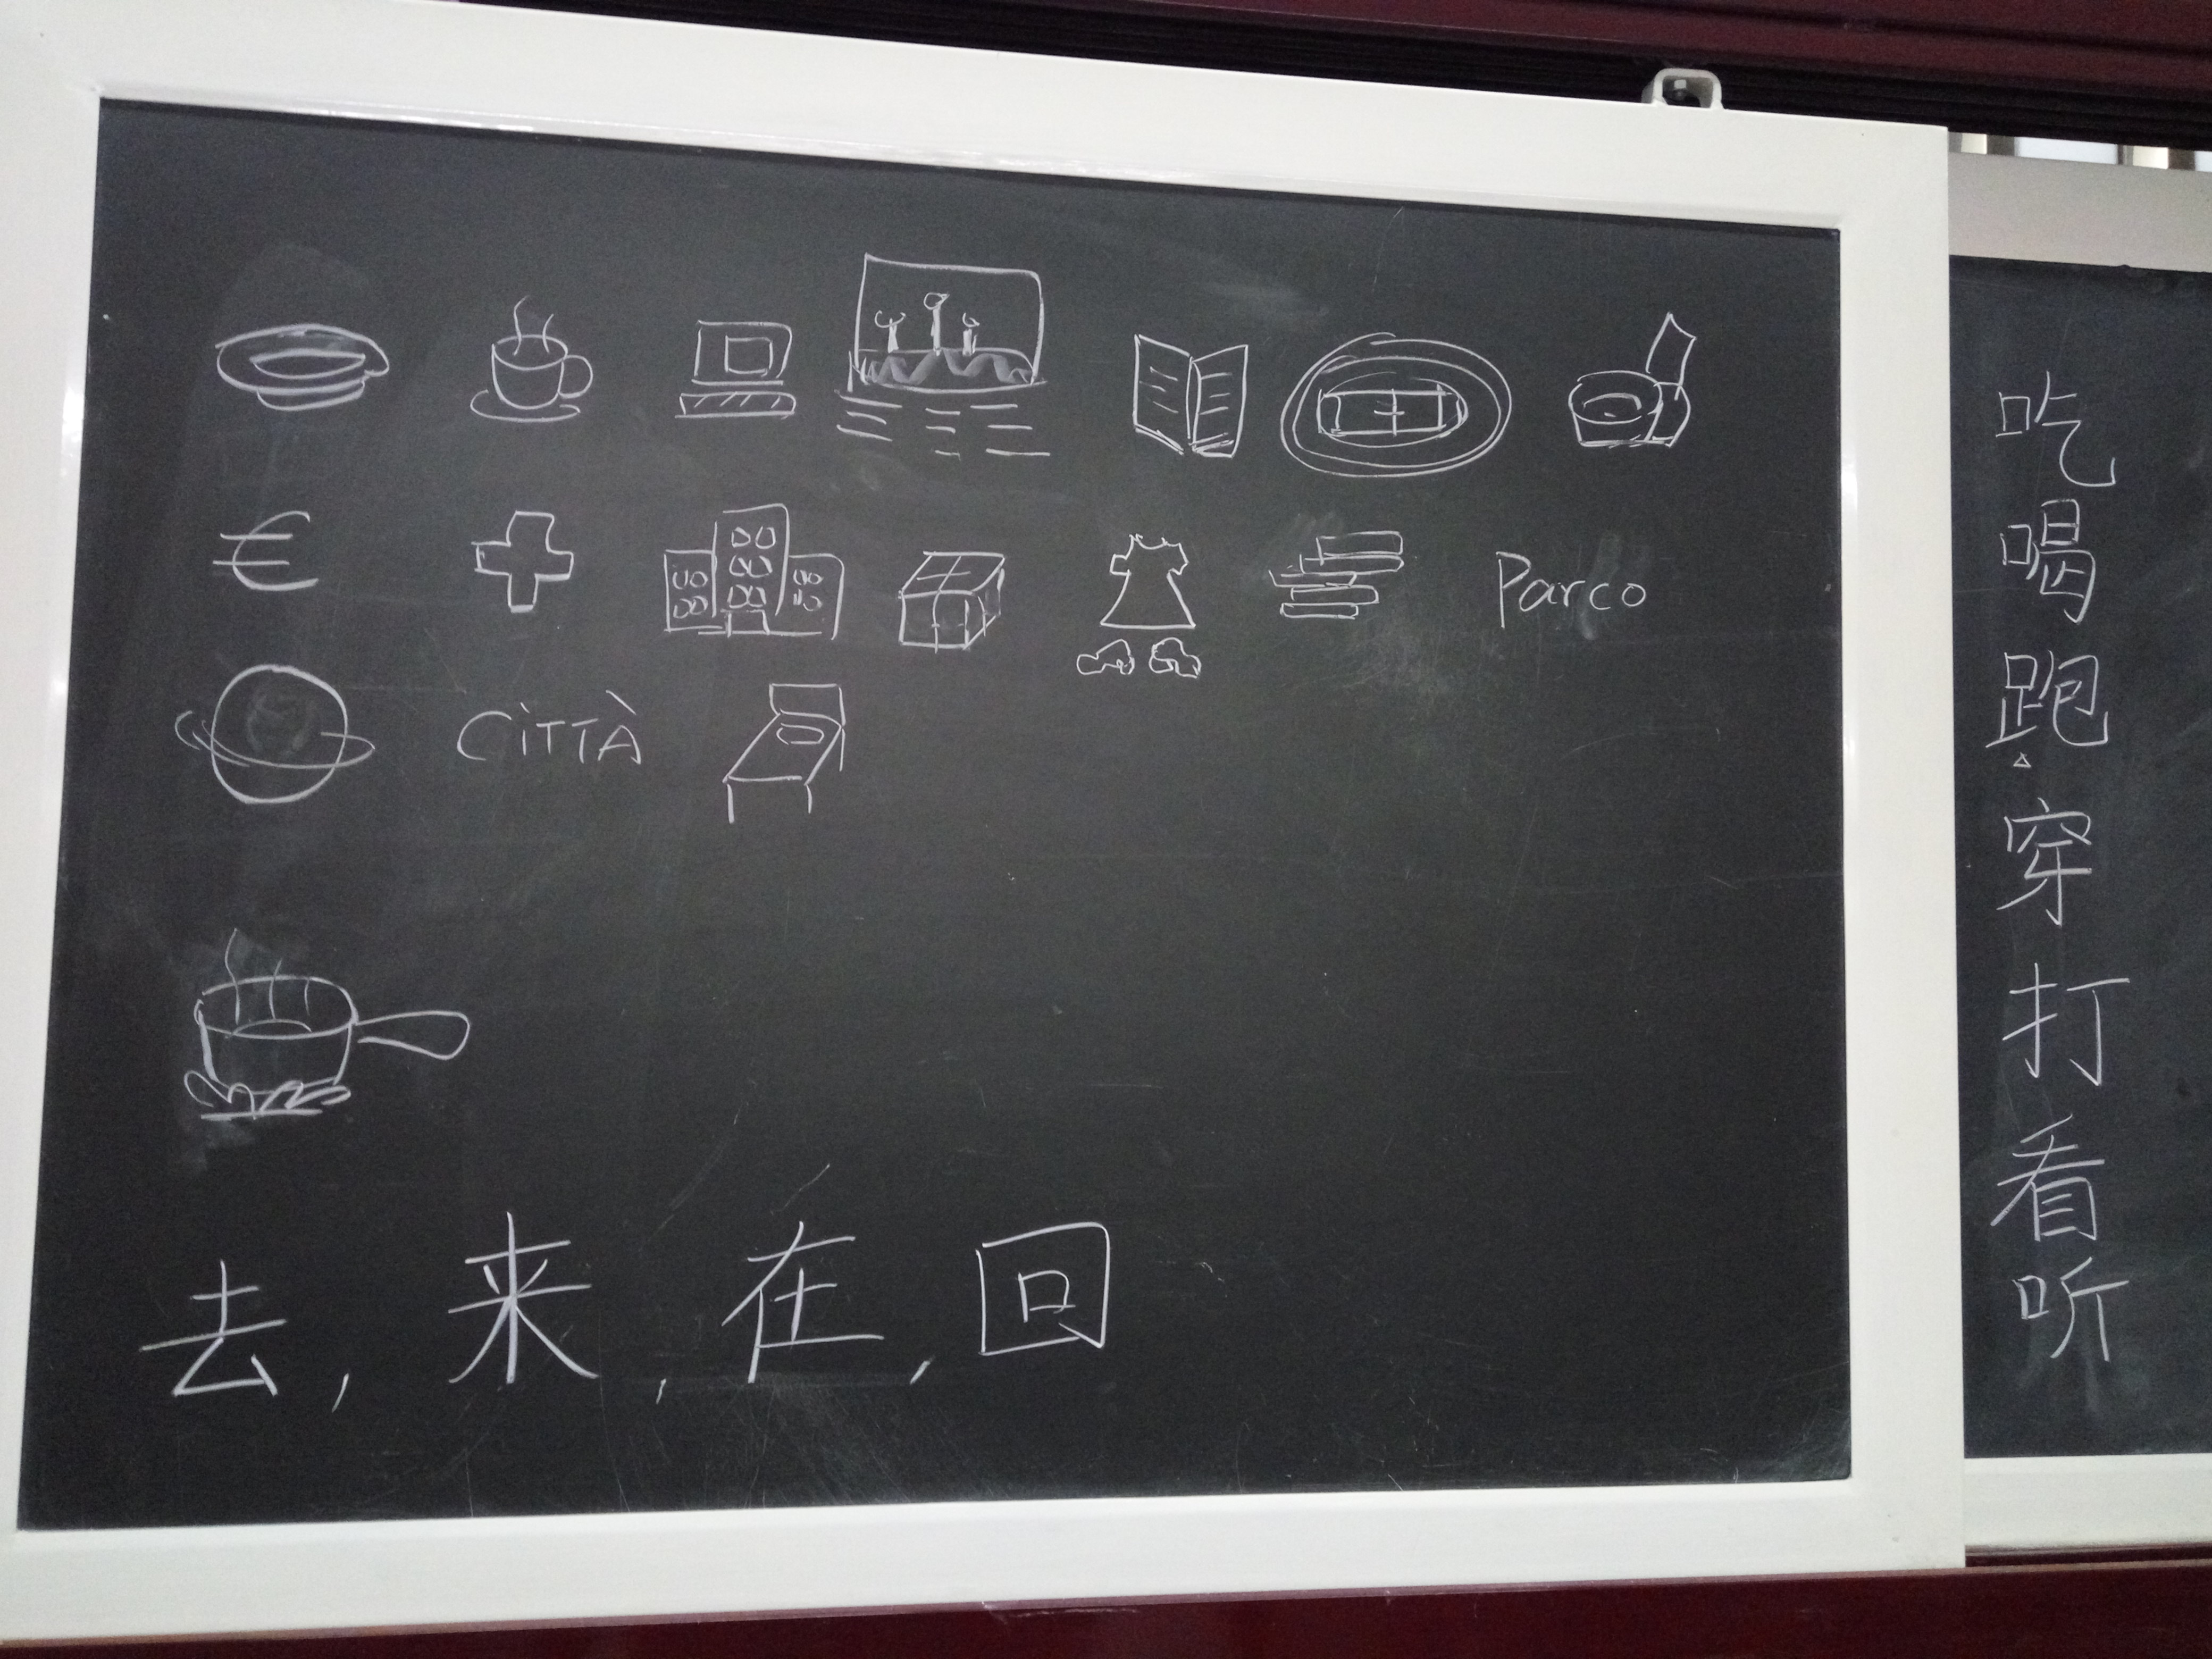 €
Parco
CiTTÀ
去, 来, 在, 回
吃
喝
跑
穿
打
看
听